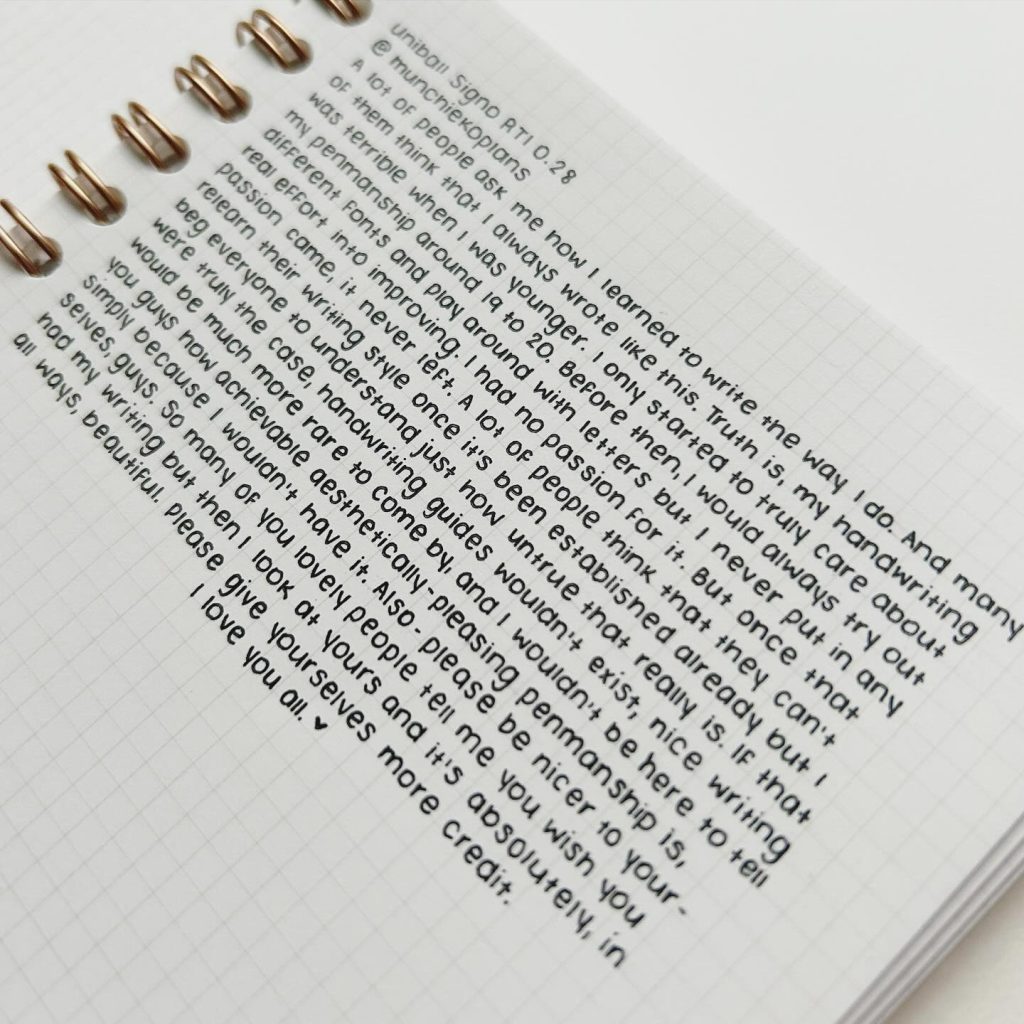 uniball Signo RT1 0.28
@munchiekopians
A lot of people ask me how I learned to write the way I do. And many
of them think that I always wrote like this. Truth is, my handwriting
was terrible when I was younger. I only started to truly care about
my penmanship around 19 to 20. Before then, I would always try out
different fonts and play around with letters but I never put in any
real effort into improving. I had no passion for it. But once that
passion came, it never left. A lot of people think that they can't
relearn their writing style once it's been established already but I
beg everyone to understand just how untrue that really is. If that
were truly the case, handwriting guides wouldn't exist, nice writing
would be much more rare to come by, and I wouldn't be here to tell
you guys how achievable aesthetically-pleasing penmanship is,
simply because I wouldn't have it. Also - please be nicer to your-
selves, guys. So many of you lovely people tell me you wish you
had my writing but then I look at yours and it's absolutely, in
all ways, beautiful. Please give yourselves more credit.
I love you all. ♥